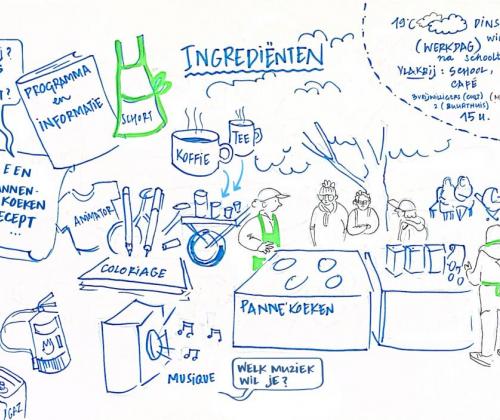 INGREDIËNTEN
19°C DINS
(WERKDAG)
na schoolt
VLAKBIJ : SCHOOL,
CAFÉ
2 (BUURTHUIS)
15 u.
PROGRAMMA
en
INFORMATIE
SCHORT
KOFFIE
TEE
EEN
ANNEN-
KOEKEN
ECEPT
...
ANIMATOR
COLORIAGE
PANNEKOEKEN
MUSIQUE
WELK MUZIEK
WIL JE?
GAZ